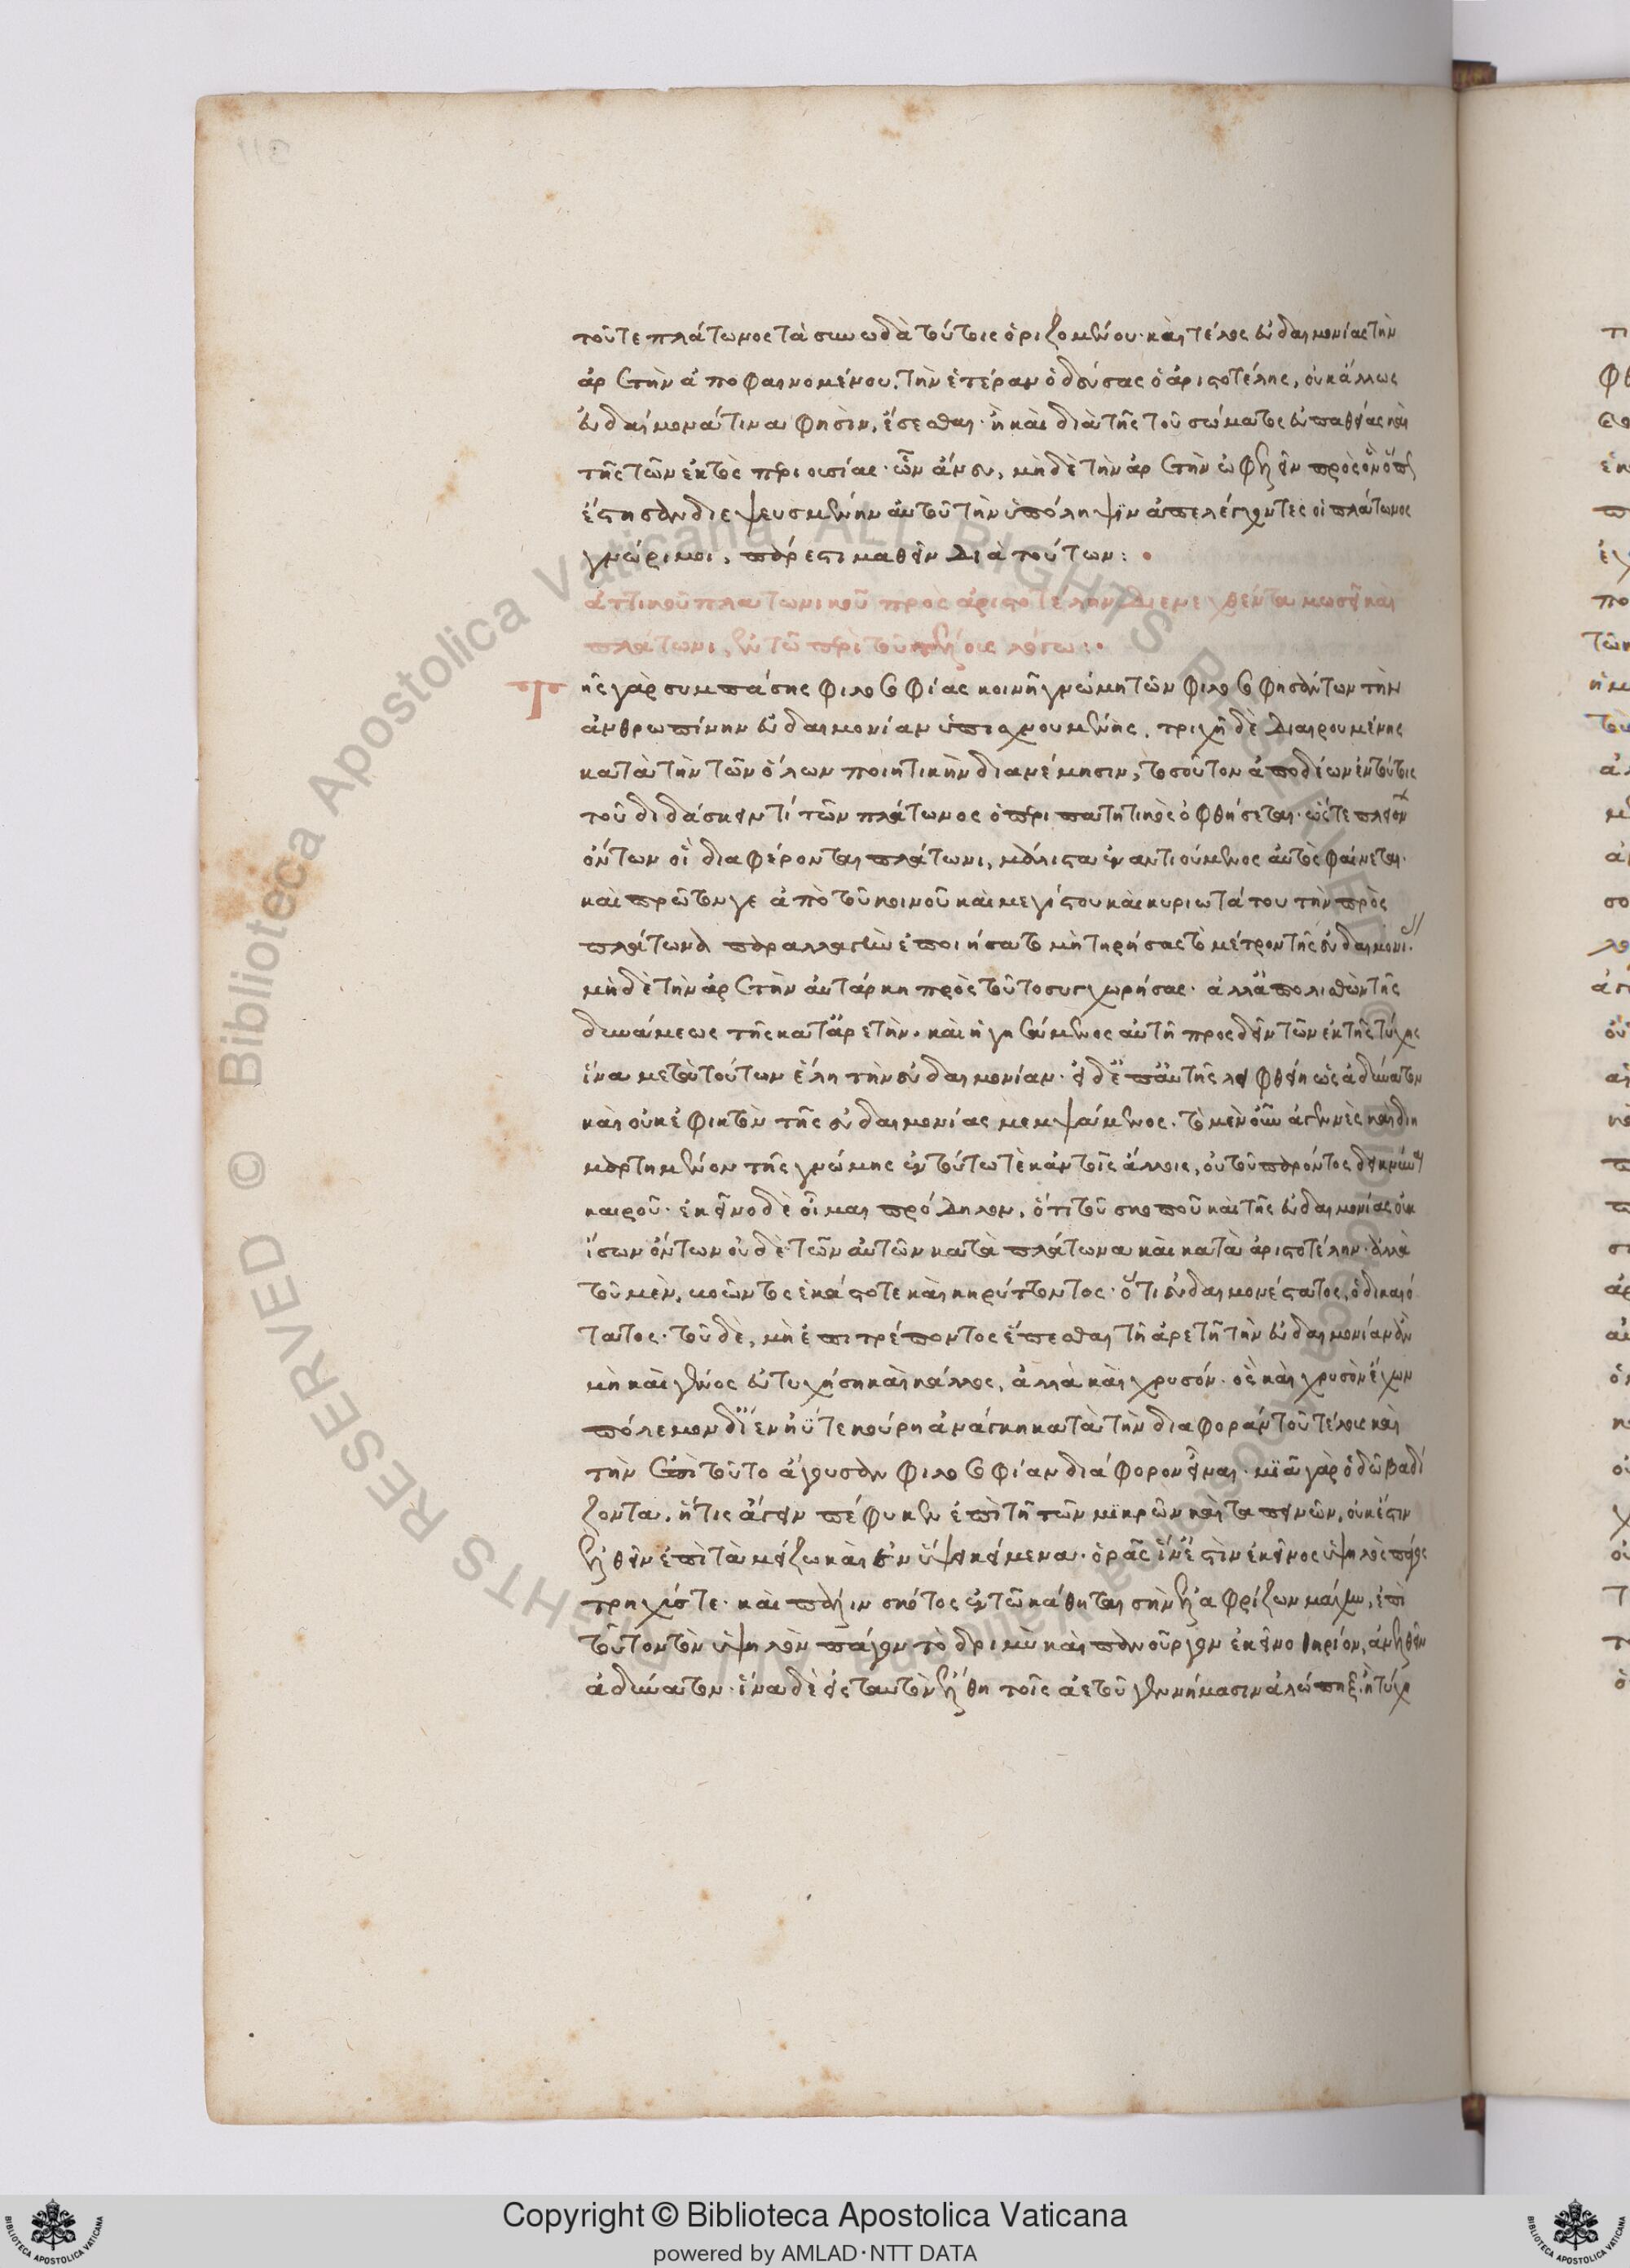 τοῦτε πλάτωνος τὰ συνωδὰ τούτοις ὁριζομένου· καὶ τέλος εὐδαιμονίας τὴν
ἀρετὴν ἀποφαινομένου, τὴν ἑτέραν ὁδεύσας ὁ ἀριστοτέλης, οὐκ ἄλλως
εὐδαίμονά τινα φησὶν, ἔσεσθαι· ἢ καὶ διὰ τῆς τοῦ σώματος εὐπαθείας καὶ
τῆς τῶν ἐκτὸς περιουσίας· ὧν ἄνευ, μηδὲ τὴν ἀρετὴν ὠφελεῖν πρὸς ὃν ὅπως
ἔστησαν διεψευσμένην αὐτοῦ τὴν ὑπόληψιν ἀπελέγχοντες οἱ πλάτωνος
γνώριμοι, πάρεστι μαθεῖν διὰ τούτων:
ἀττικοῦ πλατωνικοῦ πρὸς ἀριστοτέλην διενεχθέντα μωσεῖ καὶ
πλάτωνι, ἐν τῷ περὶ τοῦ τέλους λόγω:
Τῆς γὰρ συμπάσης φιλοσοφίας κοινῆ γνώμη τῶν φιλοσοφησάντων τὴν
ἀνθρωπίνην εὐδαιμονίαν ὑπισχνουμένης, τριχῆ δὲ διαιρουμένης
κατὰ τὴν τῶν ὅλων ποιητικὴν διανέμησιν, τοσοῦτον ἀποδέων ἐν τούτοις
τοῦ διδάσκειν τί τῶν πλάτωνος ὁ περιπατητικὸς ὀφθήσεται· ὥστε πλειόνων
ὄντων οἳ διαφέρονται πλάτωνι, μάλιστα ἐναντιούμενος αὐτὸς φαίνεται·
καὶ πρῶτον γε ἀπὸ τοῦ κοινοῦ καὶ μεγίστου καὶ κυριωτάτου τὴν πρὸς
πλάτωνα παραλλαγὴν ἐποιήσατο μὴ τηρήσας τὸ μέτρον τῆς εὐδαιμονίας
μηδὲ τὴν ἀρετὴν αὐτάρκη πρὸς τοῦτο συγχωρήσας· ἀλλ' ἀπολισθὼν τῆς
δυνάμεως τῆς κατ' ἀρετὴν· καὶ ἡγησάμενος αὐτῆ προσδεῖν τῶν ἐκ τῆς τύχης
ἵνα μετὰ τούτων ἕλη τὴν εὐδαιμονίαν· εἰ δ' ἐπ' αὐτῆς λειφθείη ὡς ἀδύνατον
καὶ οὐκ ἐφικτὸν τῆς εὐδαιμονίας μεμψάμενος· τὸ μὲν οὖν ἀγεννὲς καὶ διη
μαρτημένον τῆς γνώμης ἐν τούτω τὲ κἀν τοῖς ἄλλοις, οὐ τοῦ παρόντος δεικνύναι
καιροῦ· ἐκεῖνο δὲ οἶμαι πρόδηλον, ὅτι τοῦ σκοποῦ καὶ τῆς εὐδαιμονίας οὐκ
ἴσων ὄντων οὐδὲ τῶν αὐτῶν κατὰ πλάτωνα καὶ κατὰ ἀριστοτέλην· ἀλλὰ
τοῦ μὲν, βοῶντος ἑκάστοτε καὶ κηρύττοντος· ὅτι εὐδαιμονέστατος, ὁ δικαιό
τατος· τοῦ δὲ, μὴ ἐπιτρέποντος ἕπεσθαι τῆ ἀρετῆ τὴν εὐδαιμονίαν ἂν
μὴ καὶ γένος εὐτυχήση καὶ κάλλος, ἀλλὰ καὶ χρυσόν· ὃς καὶ χρυσὸν ἔχων
πόλεμον δ' ἴεν ἠΰτε κούρη ἀνάγκη κατὰ τὴν διαφορὰν τοῦ τέλους καὶ
τὴν ἐπὶ τοῦτο ἄγουσαν φιλοσοφίαν διάφορον εἶναι· μίαν γὰρ ὁδῶ βαδί
ζοντα, ἥτις ἄγειν πέφυκεν ἐπὶ τὶ τῶν μικρῶν καὶ ταπεινῶν, οὐκ ἔστιν
ἐλθεῖν ἐπὶ τὰ μείζω καὶ ἐν ὕψει κείμενα· ὁρᾶς ἵν' ἐστὶν ἐκεῖνος ὑψηλὸς πάγος
τρηχύς τε· καὶ παλίν σκότος ἐν τῶ κάθηται σὴν ἐλαφρίζων μάχην, ἐπὶ
τοῦτον τὸν ὑψηλὸν πάγον τὸ δριμὺ καὶ πανοῦργον ἐκεῖνο θηρίον, ἀνελθεῖν
ἀδύνατον· ἵνα δὲ εἰς ταυτὸν ἔλθη τοῖς ἀετοῦ γεννήμασιν ἀλώπηξ, ἢ τύχη
Copyright © Biblioteca Apostolica Vaticana
powered by AMLAD·NTT DATA